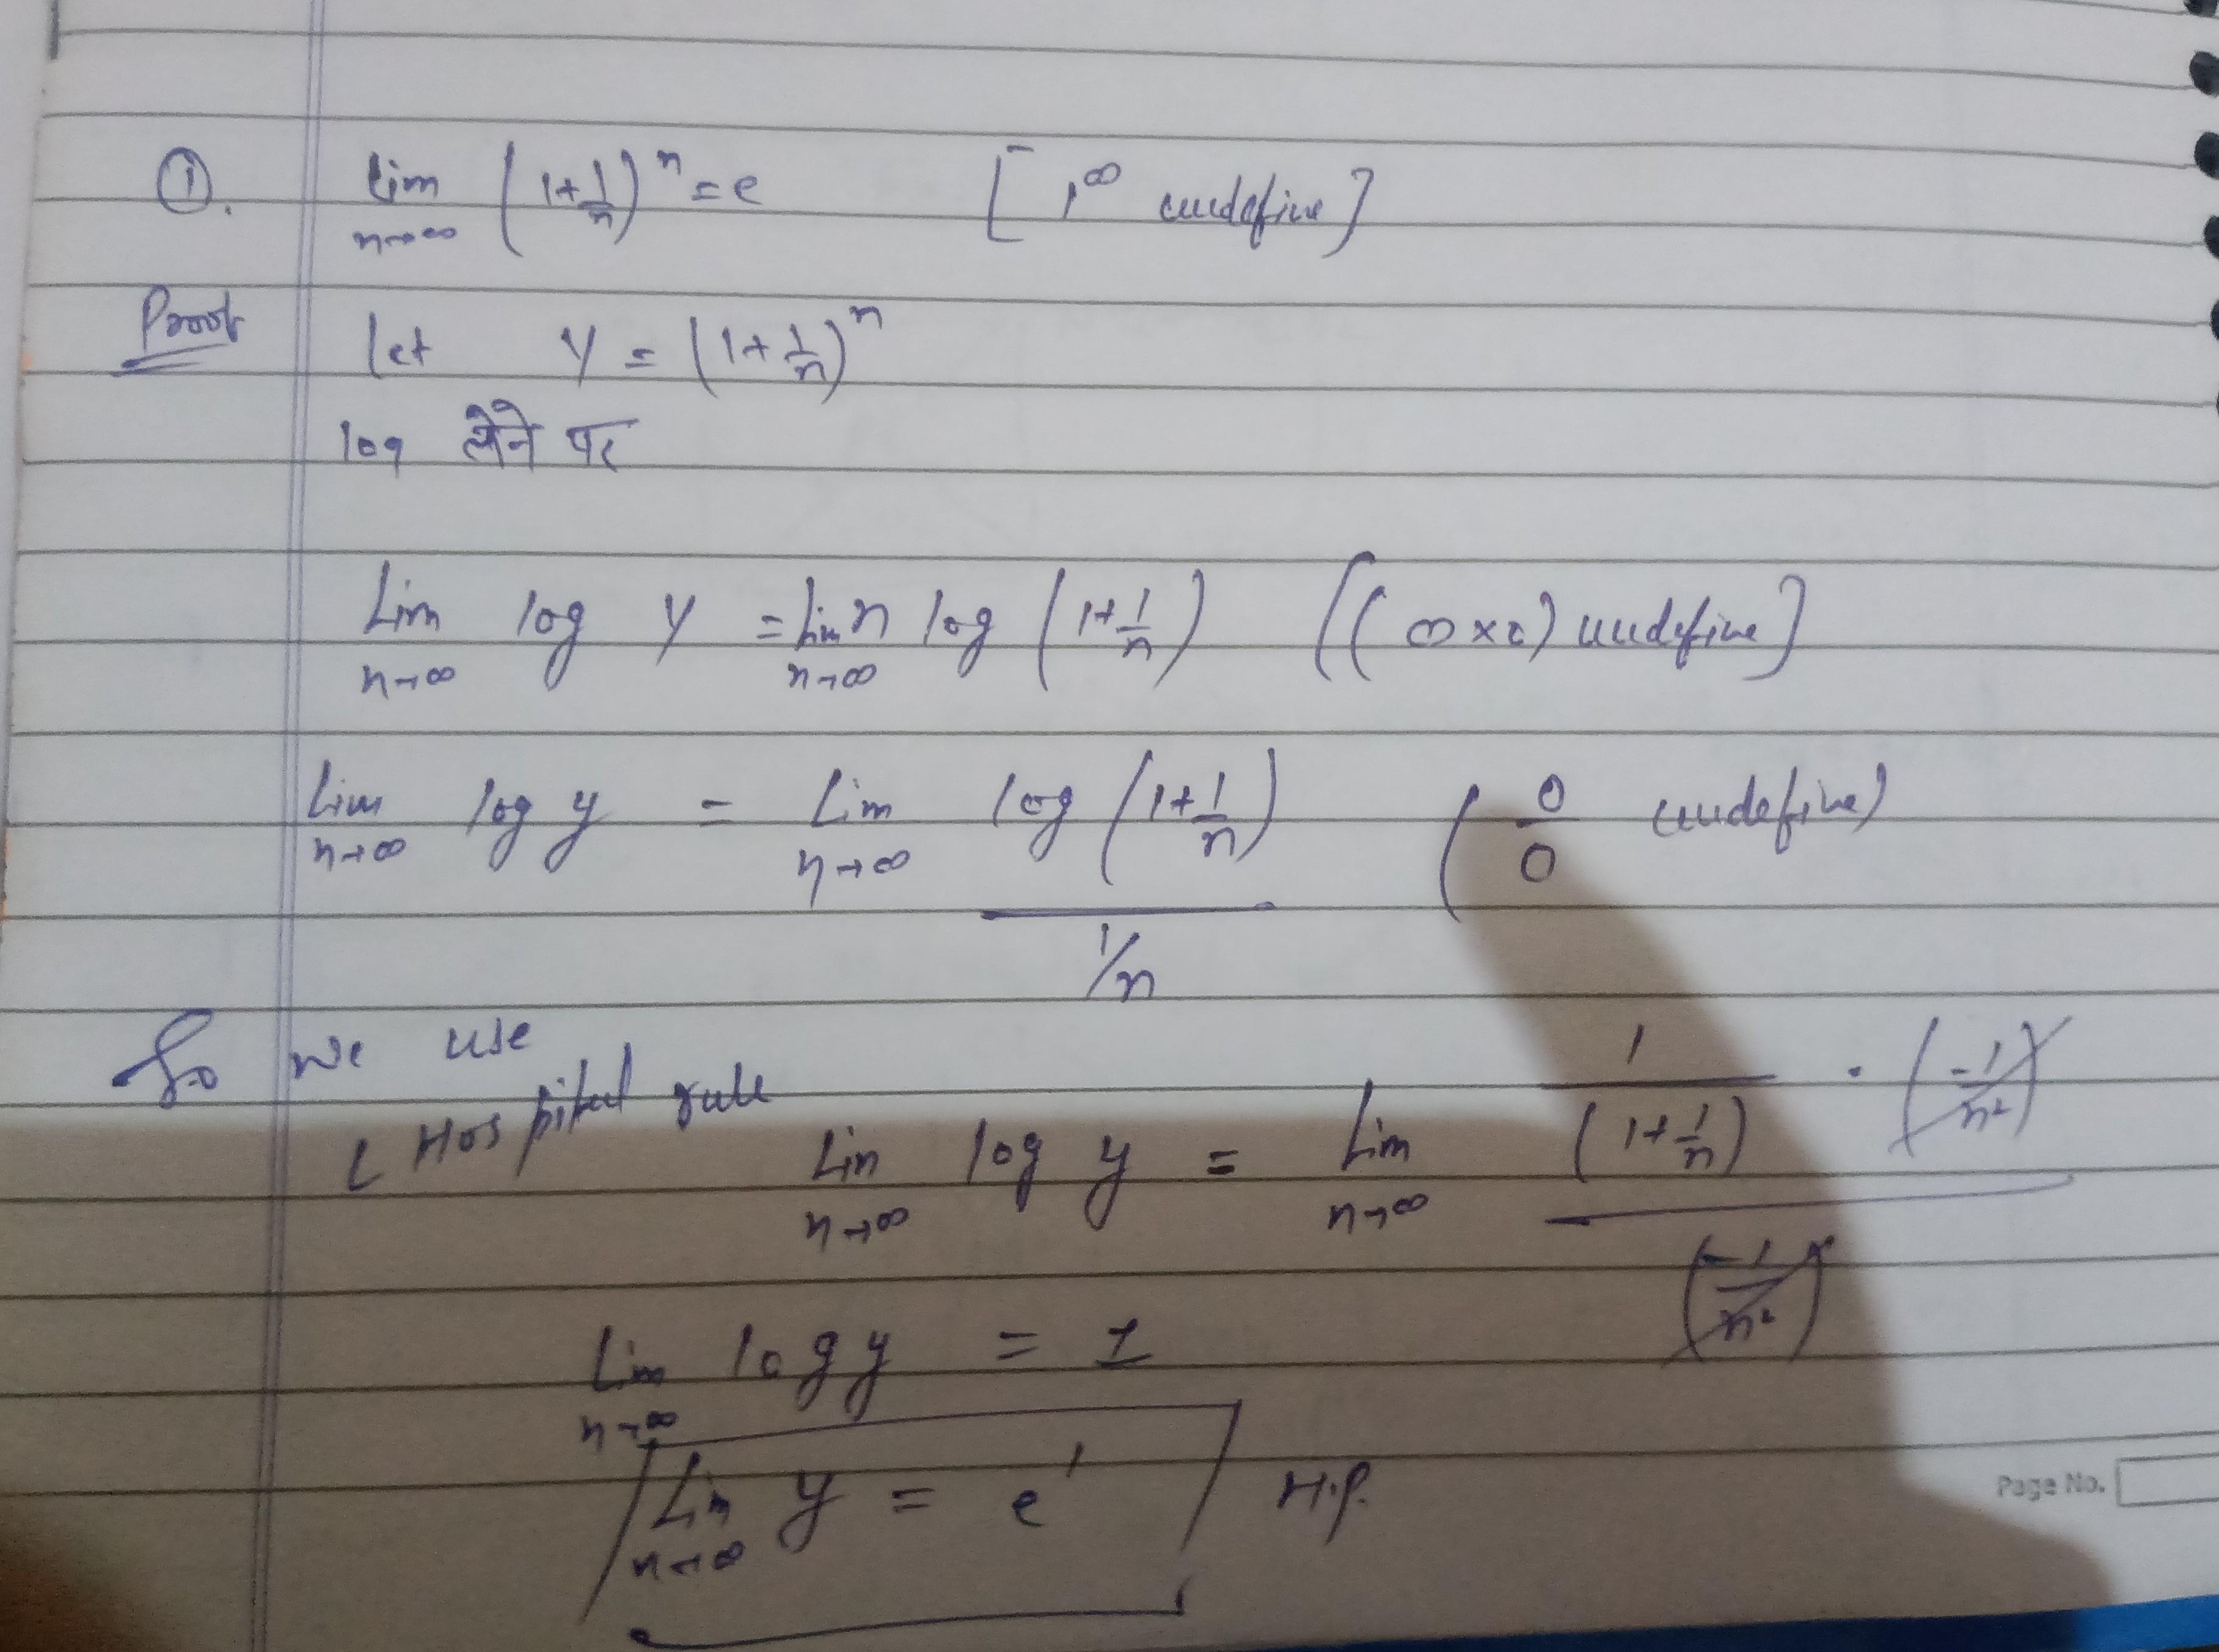 ①. lim n→∞ (1+1/n)^n = e [1^∞ undefine]
Proof let y = (1+1/n)^n
log लेने पर
Lim n→∞ log y = Lim n→∞ n log (1+1/n) [(∞×0) undefine]
Lim n→∞ log y = Lim n→∞ log (1+1/n) / 1/n (0/0 undefine)
So we use
L Hospital rule
Lim n→∞ log y = Lim n→∞ 1/(1+1/n) · (-1/n²) / (-1/n²)
Lim n→∞ log y = 1
Lim n→∞ y = e^1 H.P.
Page No.